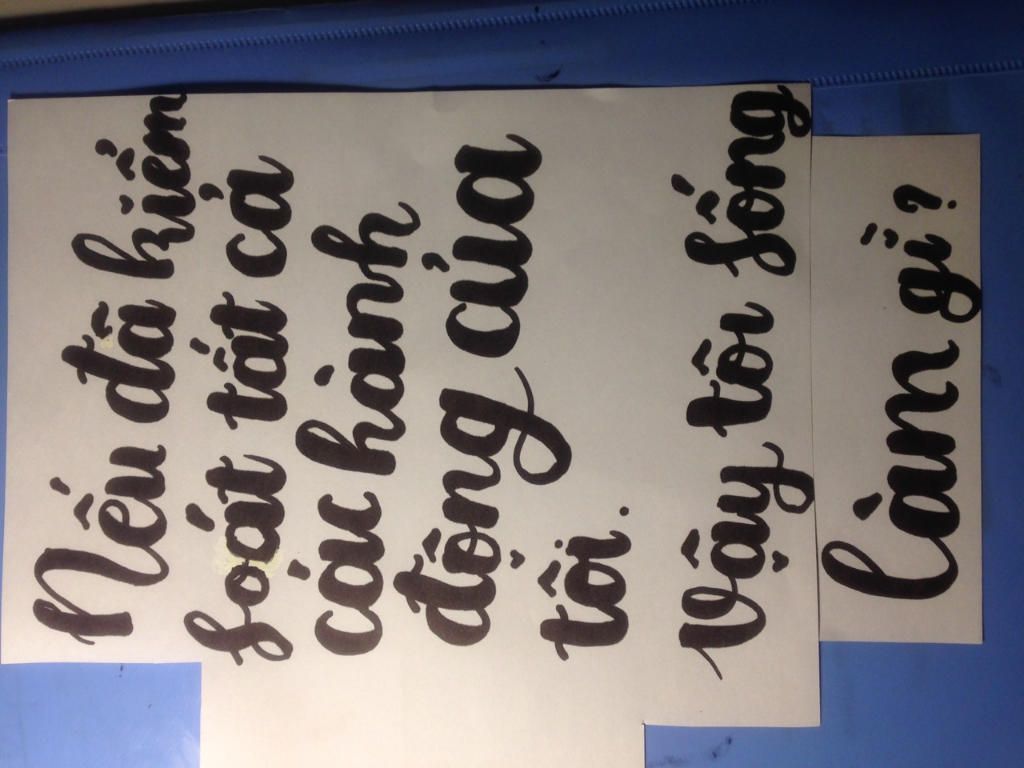 Nếu đã kiểm
soát tất cả
các hành
động của
tôi.
Vậy tôi sống
làm gì?